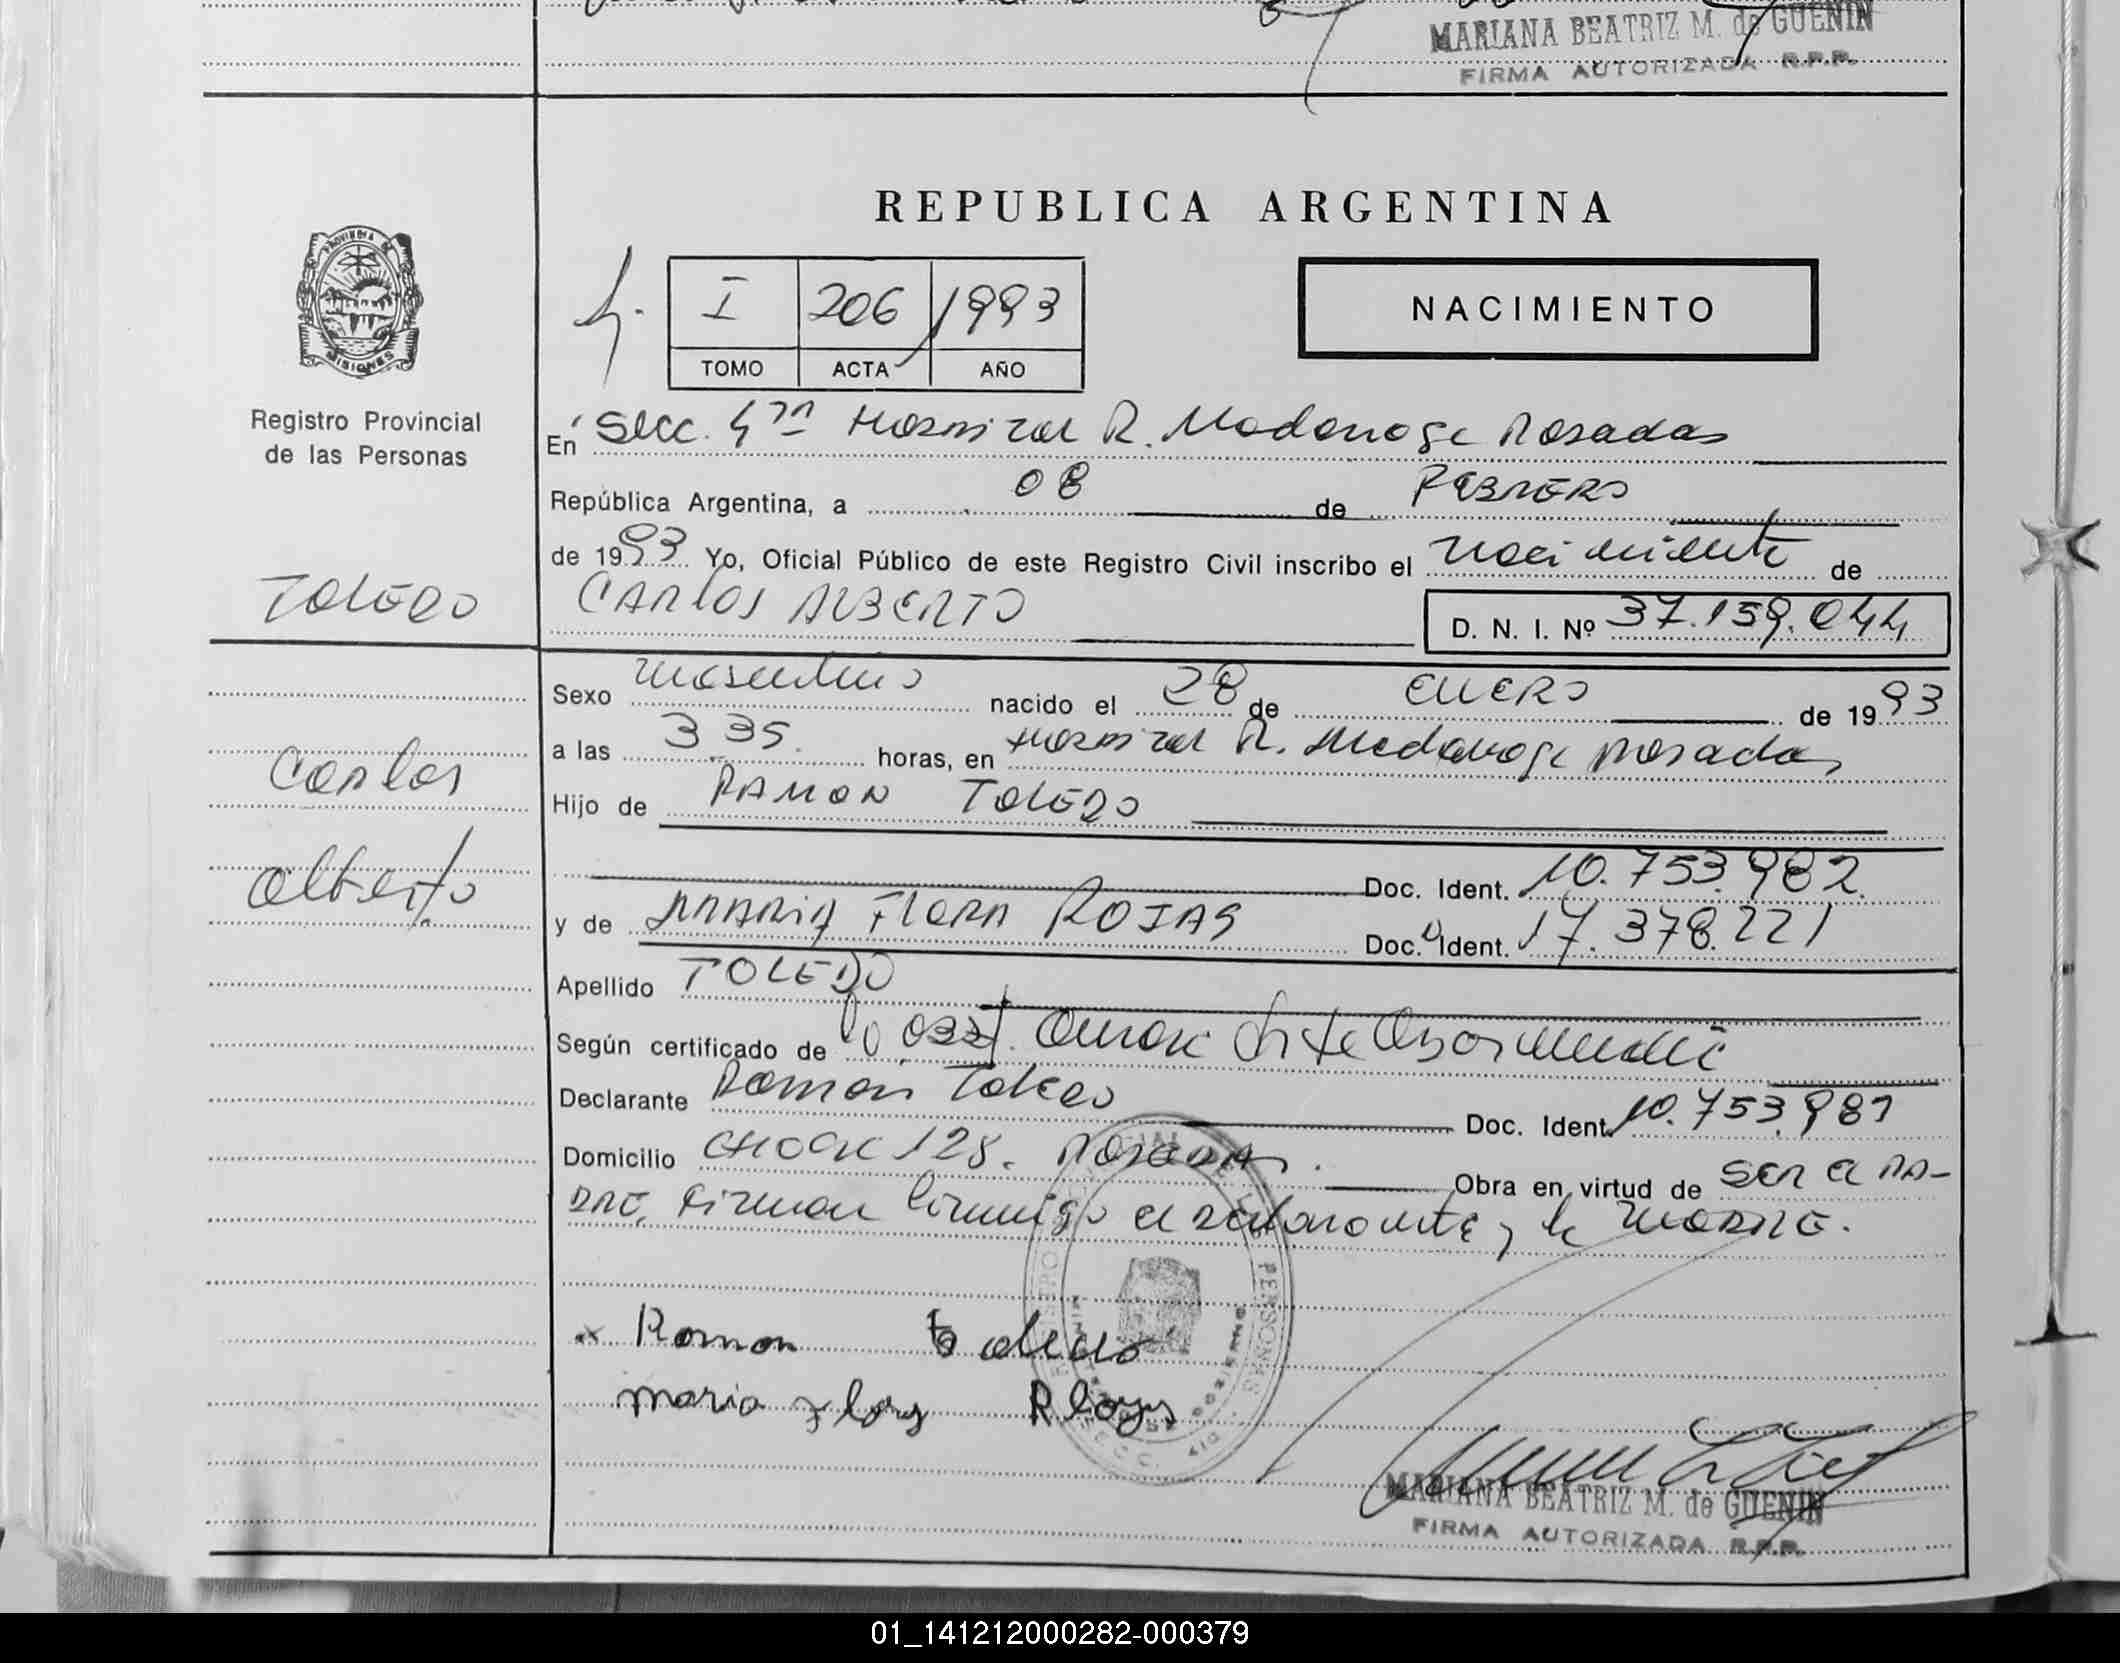 MARIANA BEATRIZ M. de GUENIN
FIRMA AUTORIZADA R.P.P.
REPUBLICA ARGENTINA
PROVINCIA DE
MISIONES
I 206 1993
TOMO ACTA AÑO
NACIMIENTO
Registro Provincial
de las Personas
En Secc. 4ta Hospital R. Madariaga Posadas
República Argentina, a 08 de FEBRERO
de 1993 Yo, Oficial Público de este Registro Civil inscribo el nacimiento de
TOLEDO
CARLOS ALBERTO
D. N. I. Nº 37.159.044
Sexo masculino nacido el 28 de ENERO de 1993
a las 3 35 horas, en Hospital R. Madariaga Posadas
Carlos
Hijo de RAMON TOLEDO
Doc. Ident. 10.753.982
Alberto
y de MARIA FLORA ROJAS Doc. Ident. 17.378.221
Apellido TOLEDO
Según certificado de
Declarante Ramon Toledo Doc. Ident. 10.753.981
Domicilio 128. Posadas. Obra en virtud de SER EL PA-
DRE, Firman conmigo el declarante y la MADRE.
Ramon to oledo
maria flora
MARIANA BEATRIZ M. de GUENIN
FIRMA AUTORIZADA R.P.P.
01_141212000282-000379